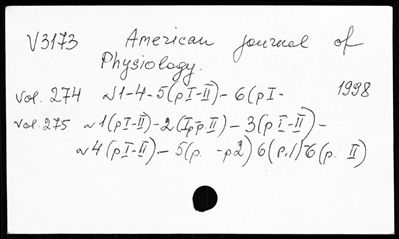 V3173 American journal of
Physiology.
vol. 274 №1-4-5(pI-II)-6(pI- 1998
vol. 275 №1(pI-II)-2(Ip-p.II)-3(pI-II)-
№4(pI-II)-5(p. -p2)6(p.1)6(p. II)